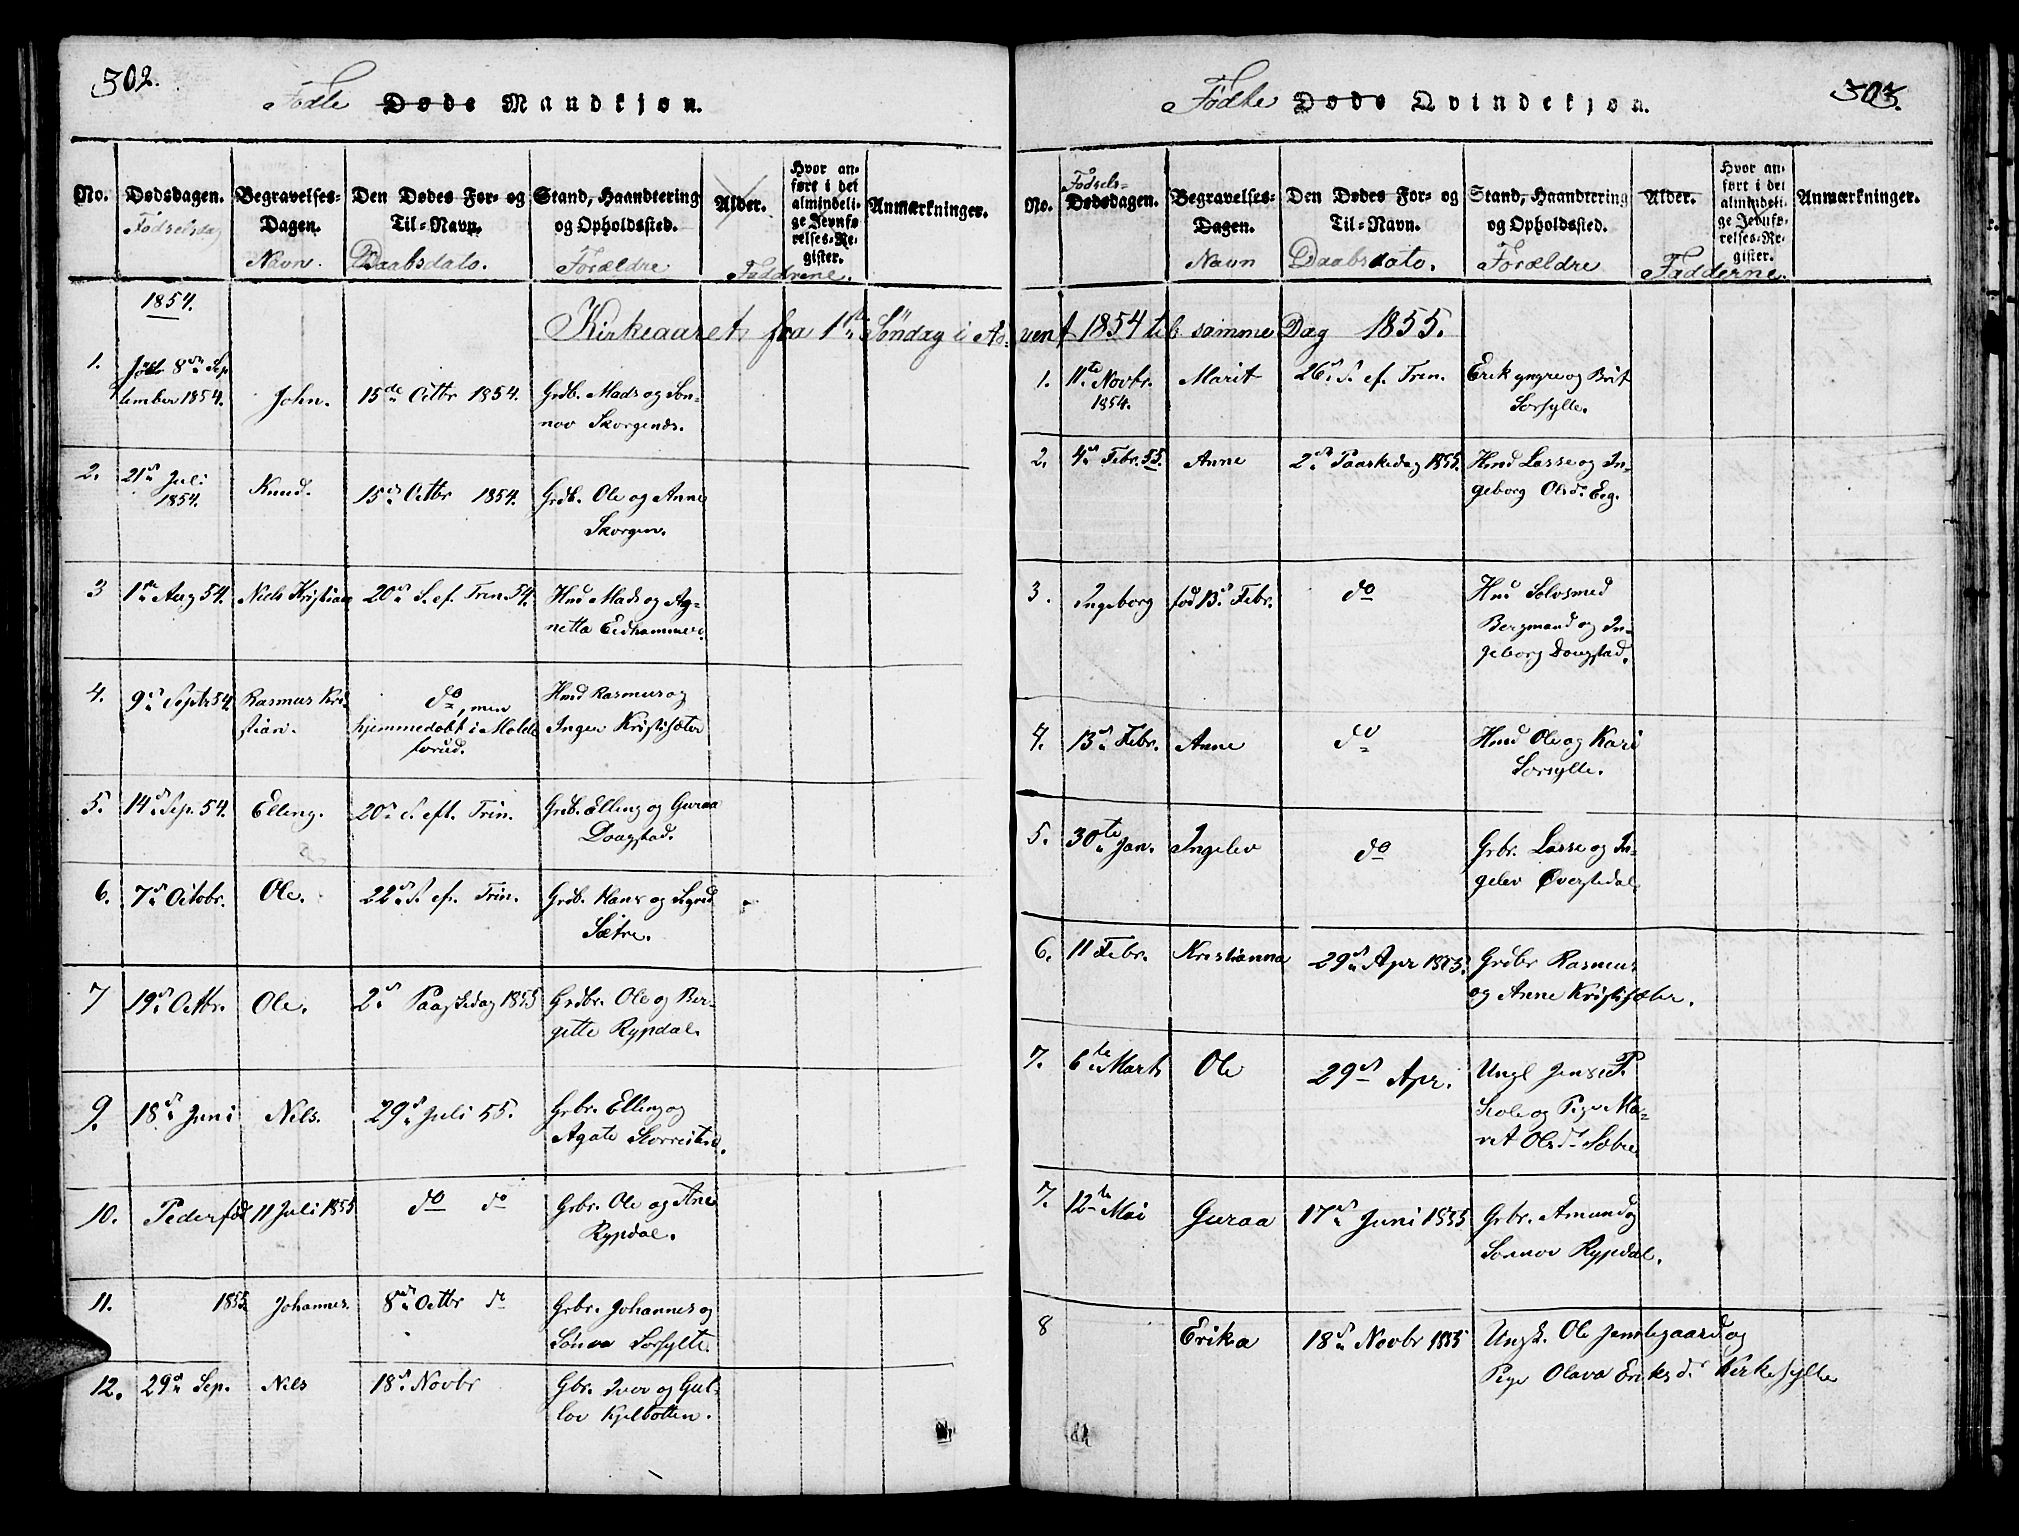 302.
Fødte Døde Mandkjøn.
No.
Dødsdagen.
Fødselsdag
Begravelses-
Dagen.
Navn.
Den Dødes For- og
Til-Navn.
Daabsdato.
Stand, Haandtering
og Opholdssted.
Forældre
Alder.
Hvor an-
ført i det
almindeli-
ge Jevnfø-
relses-Re-
gister.
Faddrene.
Anmærkninger.
1854.
Kirkeaaret fra 1ste Søndag i Ad-
1.
8de Sep
tember 1854.
John.
15de Octbr 1854.
Grdb. Mads og Søn-
nov Skorgenæs.
2.
21de Juli
1854.
Knud.
15de Octbr 1854.
Grdb. Ole og Anne
Skorgen.
3
1ste Aug 54.
Niels Kristian
20de S. ef. Trin. 54.
Hmd Mads og Ag-
netta Eidhammer.
4.
9de Septr 54.
Rasmus Kri-
stian.
do, men
hjemmedøbt i Molde
forud.
Hmd Rasmus og
Inger Kristisæter
5.
14de Sep. 54.
Elling.
20de S. eft. Trin.
Grdb. Elling og Guraa
Daagstad.
6.
7de Octobr.
Ole.
22de S. ef. Trin.
Grdb. Hans og Sigrid
Sætre.
7
19de Octbr.
Ole.
2den Paaskedag 1855
Grdbr. Ole og Ber-
gette Rypdal.
9.
18de Juni
Nils.
29de Juli 55.
Grbr. Elling og
Agate
10.
Peder fød 11 Juli 1855
do do
Grbr. Ole og Ane
Rypdal.
11.
1855.
Johannes.
8de Octbr do
Grbr. Johannes og
Sønva Sorsylte.
12.
29de Sep.
Nils
18de Novbr
Gbr. Iver og Gul-
lov Kjelbotten.
303.
Fødte Døde Qvindekjøn.
No.
Fødsels-
Dødsdagen.
Begravelses-
Dagen.
Navn
Den Dødes For- og
Til-Navn.
Daabsdato.
Stand, Haandtering
og Opholdssted.
Forældre
Alder.
Hvor an-
ført i det
almindeli-
ge Jevnfø-
relses-Re-
gister.
Fadderne.
Anmærkninger.
vent 1854 til samme Dag 1855.
1.
11te Novbr.
1854.
Marit
26de S. ef. Trin.
Erik yngre og Brit
Sorsylte.
2.
4de Febr. 55.
Anne
2den Paaskedag 1855.
Hmd Lasse og In-
geborg Olsdr Eeg.
3.
Ingeborg
fød 13de Febr.
do
Hmd Solvsmed
Bergmand og In-
geborg Dougstad.
4.
13de Febr.
Anne
do
Hmd Ole og Kari
Sorsylte.
5.
30te Jan.
Ingelev
do
Grbr. Lasse og In-
gelev Øverstedal
6.
11 Febr.
Kristianna
29de Apr 1855.
Grdbr Rasmus
og Anne Kristisæter.
7.
6te Marts
Ole
29de Apr.
Ungk Jens P.
Stole og Pige Ma-
rit Olsdr Sætre
7.
12te Mai
Guraa
17de Juni 1855
Grbr. Amund og
Sønnov Rypdal.
8
Erika
18de Novbr 1855
Ungk. Ole Jendegaard og
Pige Olava Eriksdr Kirkesylte